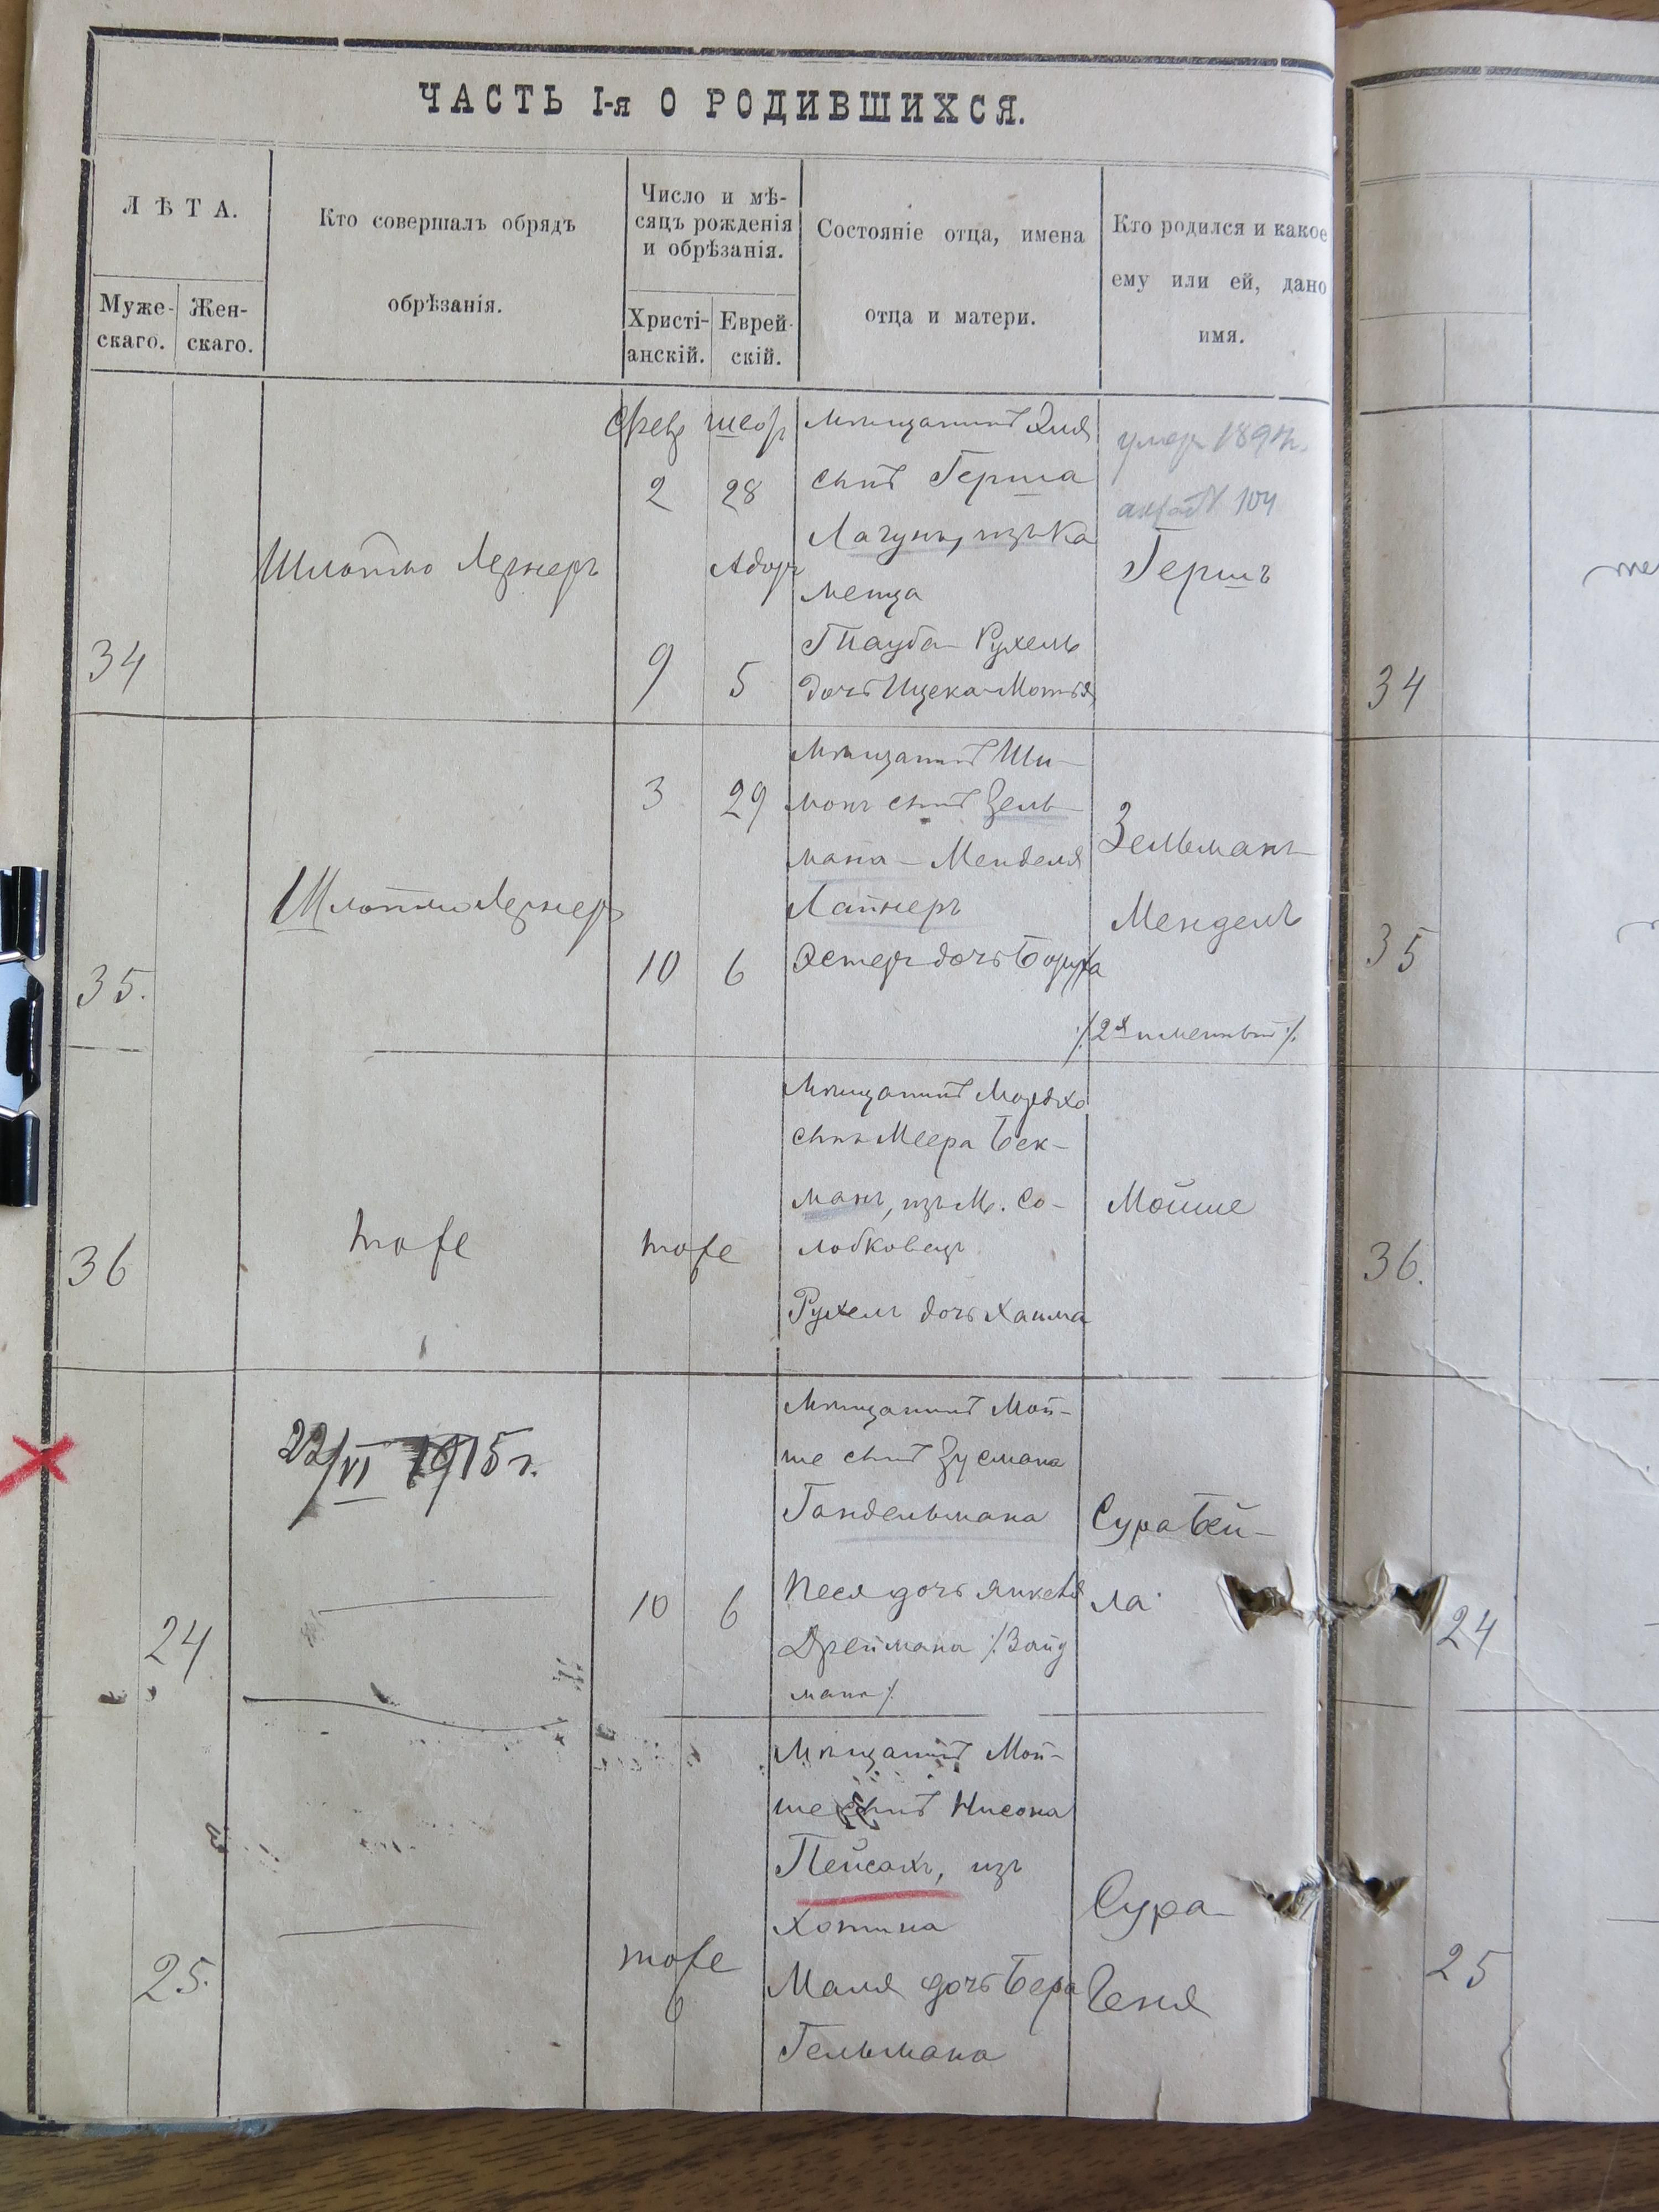 ЧАСТЬ I-я О РОДИВШИХСЯ.
ЛѢТА.
Муже-
скаго.
Жен-
скаго.
Кто совершалъ обрядъ
обрѣзанія.
Число и мѣ-
сяцъ рожденія
и обрѣзанія.
Христі-
анскій.
Еврей-
скій.
Состояніе отца, имена
отца и матери.
Кто родился и какое
ему или ей, дано
имя.
34
Шлоймо Лернеръ
Февр
2
9
28
Адор
5
мѣщанинъ Эля
сынъ Герша
Лагунъ, изъ Ка
менца
Тауба Рухель
дочь Ицека-Мотья
умер
104
Гершъ
34
35.
Шлоймо Лернеръ
3 29
10 6
Мѣщанинъ Ши-
монъ сынъ Зель-
мана-Менделя
Лайнеръ
Эстеръ дочь Боруха
Зельманъ
Мендель
/. 2х именный /.
35
36
тоже
тоже
Мѣщанинъ Мордхо
сынъ Меера Бек-
манъ, изъ М. Со-
лобковецъ
Рухель дочь Хаима
Мойше
36.
24
22/VI 1915 г.
10 6
Мѣщанинъ Мой-
ше сынъ Зусмана
Гандельмана
Песя дочь Янкеля
Дреймана /. Зайд
мана /.
Сура Бей-
ла
24
25.
тоже
6
Мѣщанинъ Мой-
ше сынъ Нисона
Пейсахъ, изъ
Хотина
Маля дочь Бера
Гельмана
Сура
Геня
25